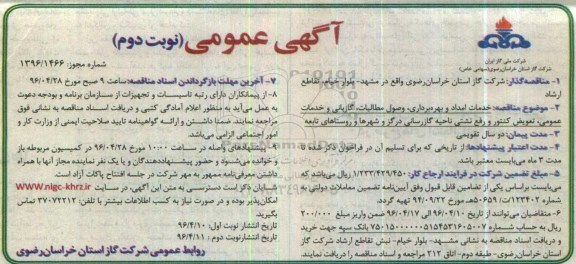 آگهی عمومی (نوبت دوم)
شرکت ملی گاز ایران
شرکت گاز استان خراسان‌رضوی (سهامی خاص)
شماره مجوز: ۱۳۹۶/۱۴۶۶
۱- مناقصه‌گذار: شرکت گاز استان خراسان‌رضوی واقع در مشهد- بلوار خیام، تقاطع
ارشاد
۲- موضوع مناقصه: خدمات امداد و بهره‌برداری، وصول مطالبات، گازبانی و خدمات
عمومی، تعویض کنتور و رفع نشتی ناحیه گازرسانی درگز و شهرها و روستاهای تابعه
۳- مدت پیمان: دو سال تقویمی
۴- مدت اعتبار پیشنهادها: از تاریخی که برای تسلیم آن در فراخوان ذکر شده تا
مدت ۳ ماه می‌بایست معتبر باشد.
۵- مبلغ تضمین شرکت در فرایند ارجاع کار: ۱/۲۳۳/۴۲۹/۴۵۰ ریال می‌باشد که
می‌بایست براساس یکی از تضامین قابل قبول وفق آیین‌نامه تضمین معاملات دولتی به
شماره ۱۲۳۴۰۲/ت۵۰۶۵۹هـ مورخ ۹۴/۰۹/۲۲ تهیه گردد.
۶- متقاضیان می‌توانند از تاریخ ۹۶/۰۴/۱۰ الی ۹۶/۰۴/۱۷ ضمن واریز مبلغ ۲۰۰/۰۰۰
ریال به حساب شماره بانک سپه جهت خرید
و دریافت اسناد مناقصه به نشانی مشهد- بلوار خیام- نبش تقاطع ارشاد شرکت گاز
استان خراسان‌رضوی- طبقه دوم- اتاق ۲۱۲ مراجعه و اسناد مناقصه را دریافت نمایند.
۷- آخرین مهلت بازگرداندن اسناد مناقصه: ساعت ۹ صبح مورخ ۹۶/۰۴/۲۸
۸- از پیمانکاران دارای رتبه تاسیسات و تجهیزات از سازمان برنامه و بودجه دعوت
به عمل می‌آید به منظور اعلام آمادگی کتبی و دریافت اسناد مناقصه به نشانی فوق
مراجعه نمایند. ضمنا داشتن و ارائه گواهینامه تایید صلاحیت ایمنی از وزارت کار و
امور اجتماعی الزامی می‌باشد.
پیشنهادهای واصله در ساعت ۱۰:۰۰ مورخ ۹۶/۰۴/۲۸ در کمیسیون مربوطه باز
و خوانده می‌شود و حضور پیشنهاددهندگان و یا یک نفر نماینده مجاز آنها با همراه
داشتن معرفی‌نامه ممهور به مهر شرکت در جلسه افتتاح پاکات آزاد است.
شایان ذکر است دسترسی به متن این آگهی، در سایت www.nigc-khrz.ir
امکان‌پذیر بوده و در صورت نیاز به کسب اطلاعات بیشتر با تلفن: ۳۷۰۷۲۲۱۲ تماس
بگیرید.
تاریخ انتشار نوبت اول: ۹۶/۴/۱۰
تاریخ انتشار نوبت دوم: ۹۶/۴/۱۱
روابط عمومی شرکت گاز استان خراسان‌رضوی